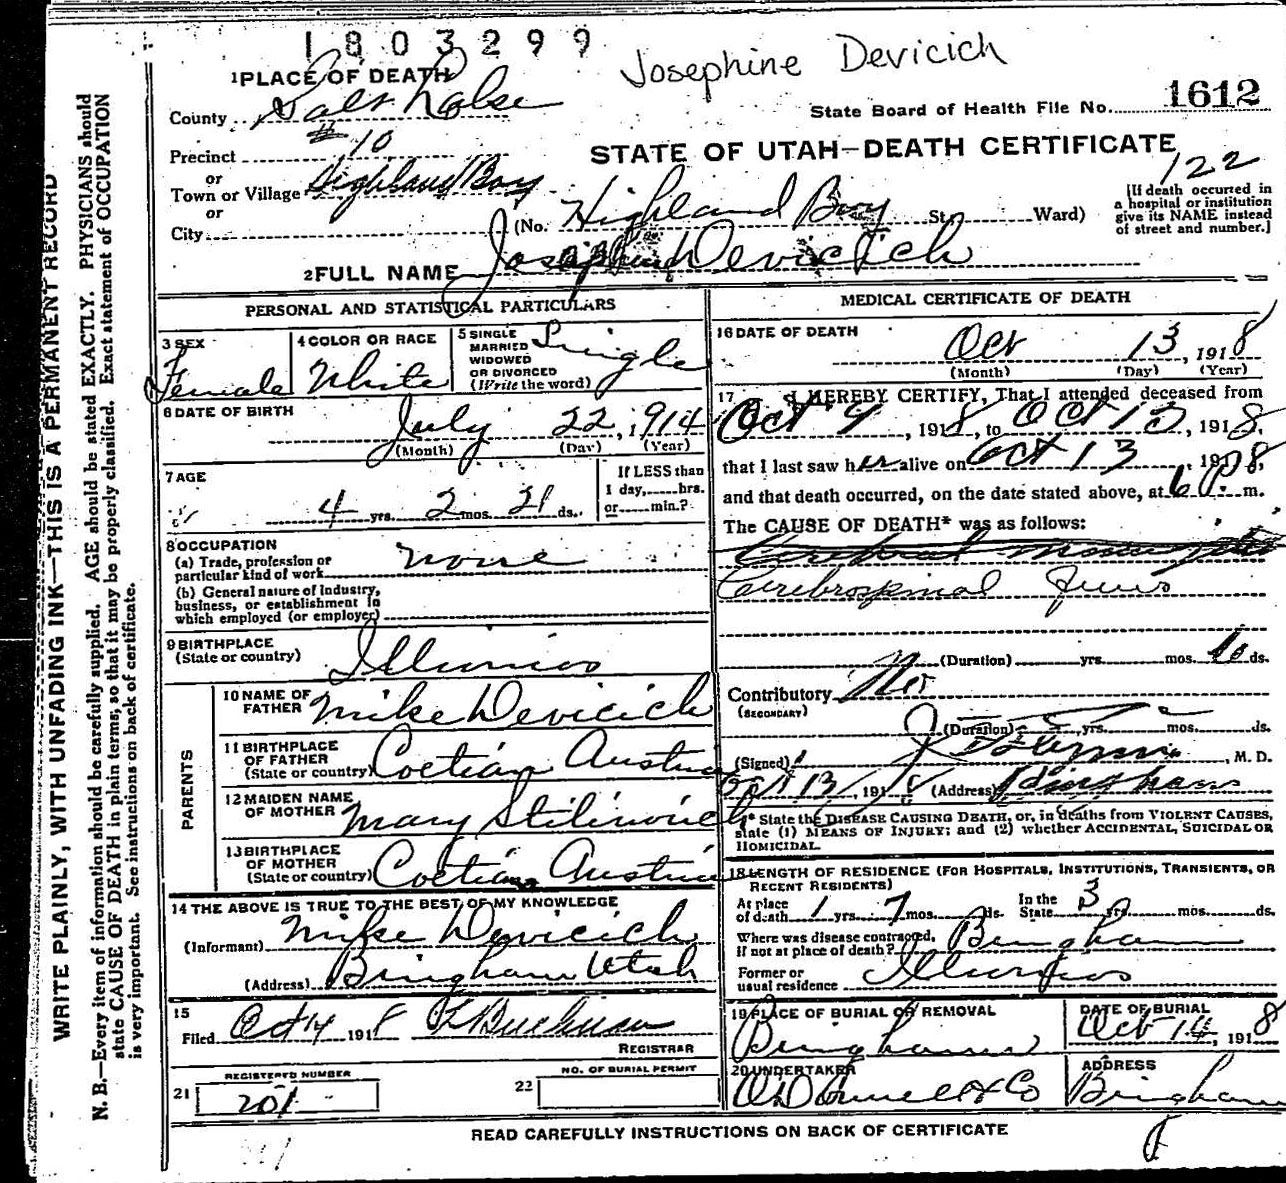 1803299
Josephine Devicich
1 PLACE OF DEATH
County Salt Lake
State Board of Health File No. 1612
Precinct #10
STATE OF UTAH—DEATH CERTIFICATE
122
or
Town or Village Highland Boy
or
City
(No. Highland Boy St. Ward)
[If death occurred in
a hospital or institution
give its NAME instead
of street and number.]
2 FULL NAME Josephine Devicich
PERSONAL AND STATISTICAL PARTICULARS
3 SEX
Female
4 COLOR OR RACE
White
5 SINGLE
MARRIED
WIDOWED
OR DIVORCED
(Write the word)
Single
6 DATE OF BIRTH
July 22, 1914
(Month) (Day) (Year)
7 AGE
4 yrs. 2 mos. 21 ds.
If LESS than
1 day, hrs.
or min.?
8 OCCUPATION
(a) Trade, profession or
particular kind of work none
(b) General nature of industry,
business, or establishment in
which employed (or employer)
9 BIRTHPLACE
(State or country) Illinios
PARENTS
10 NAME OF
FATHER Mike Devicich
11 BIRTHPLACE
OF FATHER
(State or country) Austria
12 MAIDEN NAME
OF MOTHER Mary
13 BIRTHPLACE
OF MOTHER
(State or country) Austria
14 THE ABOVE IS TRUE TO THE BEST OF MY KNOWLEDGE
(Informant) Mike Devicich
(Address) Bingham Utah
15
Filed Oct 14 1918
REGISTRAR
REGISTERED NUMBER
21 201
NO. OF BURIAL PERMIT
22
MEDICAL CERTIFICATE OF DEATH
16 DATE OF DEATH
Oct 13, 1918
(Month) (Day) (Year)
17 I HEREBY CERTIFY, That I attended deceased from
Oct 9, 1918, to Oct 13, 1918,
that I last saw her alive on Oct 13, 1918,
and that death occurred, on the date stated above, at 6 P. m.
The CAUSE OF DEATH* was as follows:
Cerebral
Cerebrospinal
(Duration) yrs. mos. 10 ds.
Contributory
(SECONDARY)
(Duration) yrs. mos. ds.
(Signed) , M. D.
Oct 13, 1918 (Address) Bingham
* State the DISEASE CAUSING DEATH, or, in deaths from VIOLENT CAUSES,
state (1) MEANS OF INJURY; and (2) whether ACCIDENTAL, SUICIDAL OR
HOMICIDAL.
18 LENGTH OF RESIDENCE (FOR HOSPITALS, INSTITUTIONS, TRANSIENTS, OR
RECENT RESIDENTS)
At place
of death 1 yrs. 7 mos. ds.
In the
State 3 yrs. mos. ds.
Where was disease contracted,
if not at place of death? Bingham
Former or
usual residence
19 PLACE OF BURIAL OR REMOVAL
Bingham
DATE OF BURIAL
Oct 14, 1918
20 UNDERTAKER
O'Donnell & Co
ADDRESS
Bingham
READ CAREFULLY INSTRUCTIONS ON BACK OF CERTIFICATE
WRITE PLAINLY, WITH UNFADING INK—THIS IS A PERMANENT RECORD
N. B.—Every item of information should be carefully supplied. AGE should be stated EXACTLY. PHYSICIANS should
state CAUSE OF DEATH in plain terms, so that it may be properly classified. Exact statement of OCCUPATION
is very important. See instructions on back of certificate.